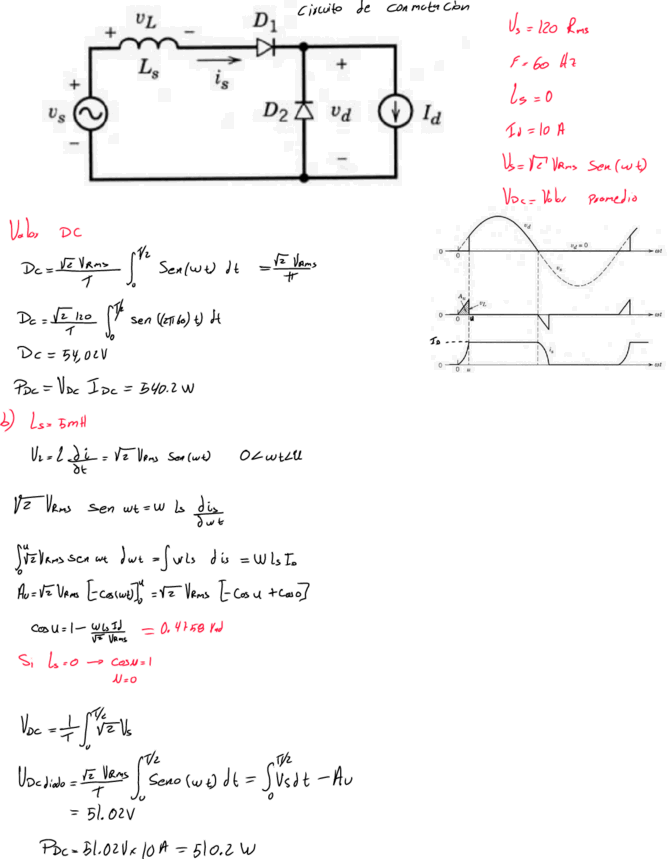 Circuito de conmutación
+ v_L −
D₁
L_s
i_s
+
v_s
−
D₂
+
v_d
−
I_d
Vs = 120 Rms
F = 60 Hz
Ls = 0
Id = 10 A
Vs = √2 VRms Sen(wt)
VDC = Valor Promedio
Valor DC
DC = √2 VRms / T ∫₀^T/2 Sen(wt) dt = √2 VRms / π
DC = √2 120 / T ∫₀^T/2 sen((2π60)t) dt
DC = 54,02V
PDC = VDC IDC = 540.2 W
v_d
v_d = 0
v_s
0
0
ωt
A_u
v_L
0
0
u
ωt
I_D
i_s
0
0
u
ωt
b) Ls = 5mH
VL = L ∂i/∂t = √2 VRms Sen(wt) 0<wt<u
√2 VRms sen wt = w Ls dis/dwt
∫₀^u √2 VRms sen wt dwt = ∫ wLs dis = WLs Io
Au = √2 VRms [-cos(wt)]₀^u = √2 VRms [-cos u + cos 0]
cos u = 1 - wLs Id / √2 VRms = 0.4758 rad
Si Ls = 0 → cos u = 1
u = 0
VDC = 1/T ∫₀^T/2 √2 Vs
VDC diodo = √2 VRms / T ∫₀^T/2 Seno(wt) dt = ∫₀^T/2 Vs dt - Au
= 51.02V
PDC = 51.02V × 10 A = 510.2 W